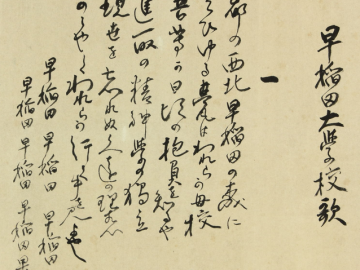 早稲田大学校歌
一
都の西北早稲田の森に
そびゆる甍はわれらの母校
吾等の日頃の抱負を知るや
進取の精神学の独立
現世を忘れぬ久遠の理想
かゞやくわれらの行手を見よや
早稲田 早稲田 早稲田
早稲田 早稲田 早稲田
早稲田 早稲田